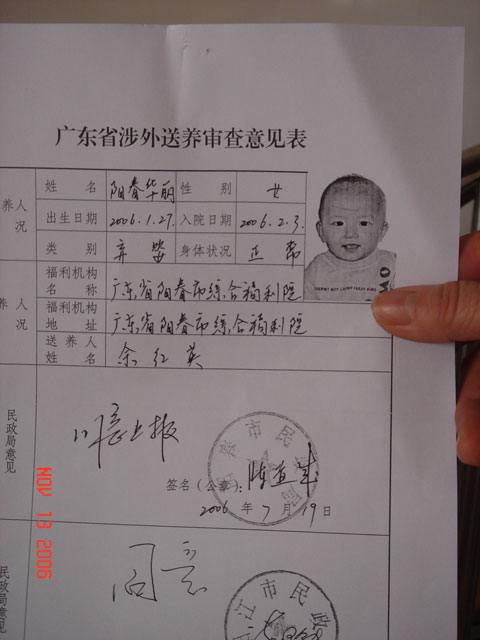 广东省涉外送养审查意见表
养人
况
姓 名 阳春华丽 性 别 女
出生日期 2006.1.27. 入院日期 2006.2.3.
类 别 弃婴 身体状况 正常
养人
况
福利机构
名 称
广东省阳春市综合福利院
福利机构
地 址
广东省阳春市综合福利院
送养人
姓 名
余红英
民政局意见
同意上报
市民
签名(公章):
2006 年 7 月 19 日
民政局意见
同意
江市民政
NOV 13 2006